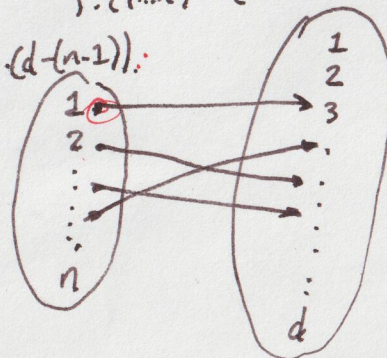 ·(d-(n-1)).
1
2
n
1
2
3
d